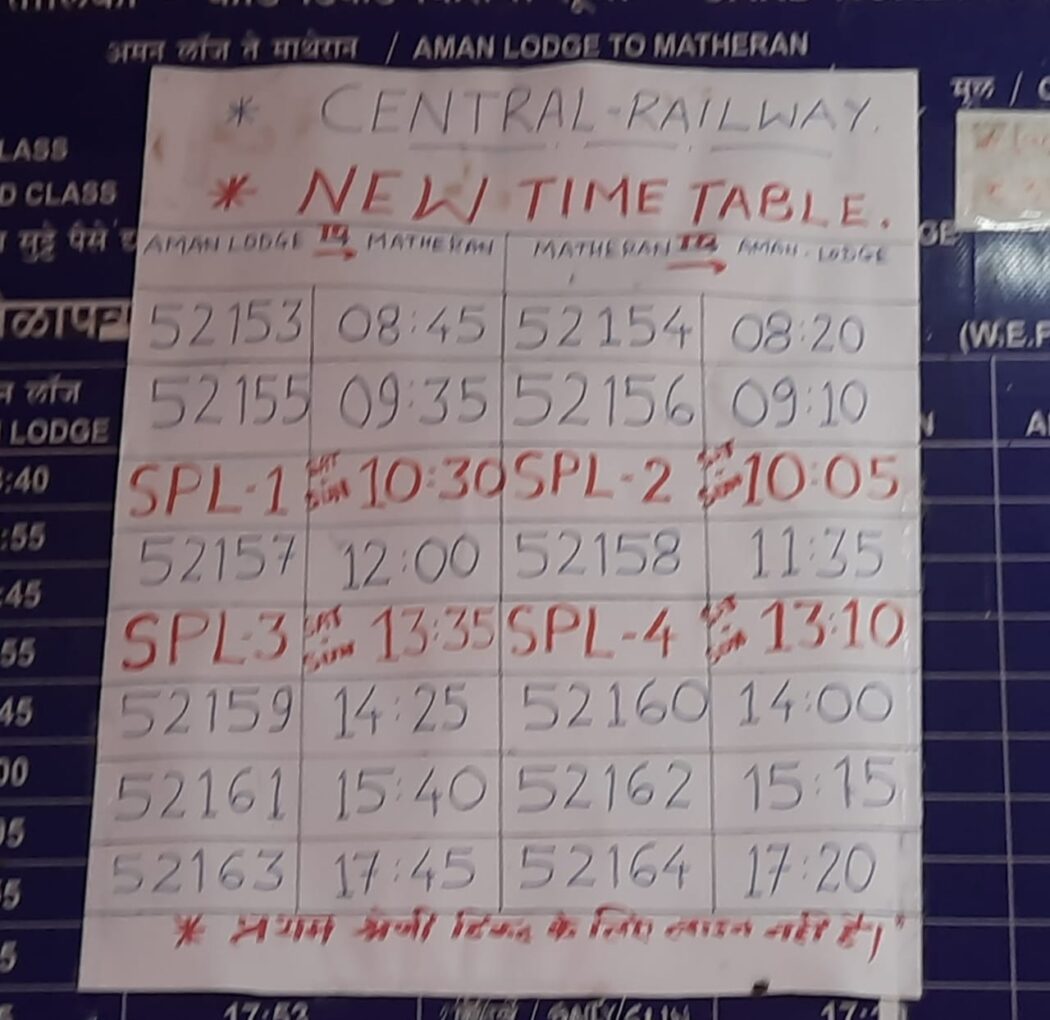 अमन लॉज ते माथेरान / AMAN LODGE TO MATHERAN
मूल /
* CENTRAL-RAILWAY.
LASS
* NEW TIME TABLE.
D CLASS
मुद्दे पैसे
AMAN LODGE TO → MATHERAN MATHERAN TO → AMAN. LODGE
GE
52153 08:45 52154 08:20
(W.E.F
52155 09:35 52156 09:10
लॉज
LODGE
:40
SPL-1 SAT SUN 10:30 SPL-2 SAT SUN 10:05
:55
52157 12:00 52158 11:35
:45
SPL-3 SAT SUN 13:35 SPL-4 SAT SUN 13:10
55
52159 14:25 52160 14:00
45
52161 15:40 52162 15:15
00
05
52163 17:45 52164 17:20
5
* प्रथम श्रेणी टिकट के लिए लाइन नहीं है।
5
17:52